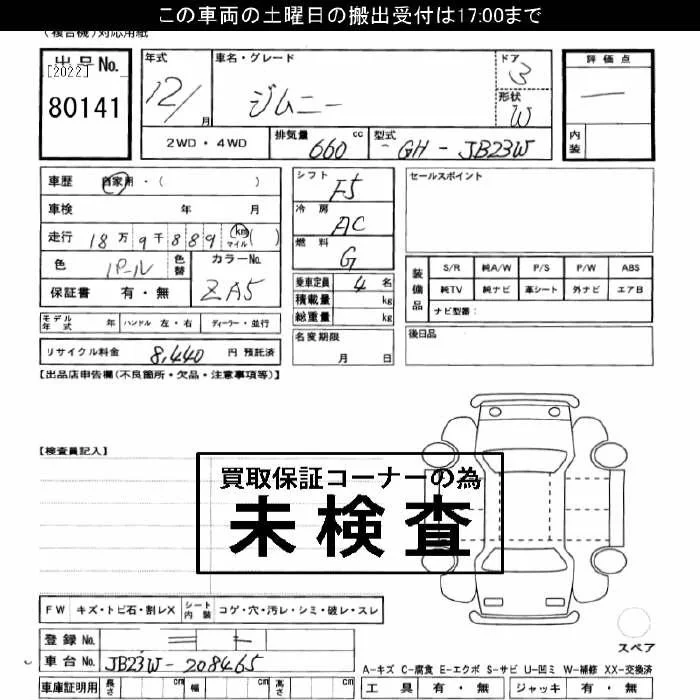 この車両の土曜日の搬出受付は17:00まで
(複合機)対応用紙
出品No.
[2022]
80141
年式
12/
月
車名・グレード
ジムニー
ドア
3
形状
W
評価点
内装
2WD・4WD
排気量
660
cc
型式
GH - JB23W
車歴 自家用・( )
車検 年 月
走行 18万9千889 km マイル ( )
色 パール 色替
カラーNo.
ZA5
保証書 有・無
シフト
F5
冷房
AC
燃料
G
乗車定員 4 名
積載量 kg
総重量 kg
セールスポイント
装備品
S/R 純A/W P/S P/W ABS
純TV 純ナビ 革シート 外ナビ エアB
ナビ型番:
モデル年式 年 ハンドル 左・右 ディーラー・並行
名変期限
月 日
後日品
リサイクル料金 8,440 円 預託済
【出品店申告欄(不良箇所・欠品・注意事項等)】
【検査員記入】
買取保証コーナーの為
未検査
FW キズ・トビ石・割レX シート内装 コゲ・穴・汚レ・シミ・破レ・スレ
登録No.
車台No. JB23W-208465
車庫証明用 長さ cm 幅 cm 高さ cm
スペア
A-キズ C-腐食 E-エクボ S-サビ U-凹ミ W-補修 XX-交換済
工具 有・無 ジャッキ 有・無